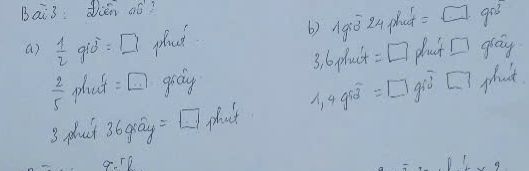 Bài 3: Điền số?
a) 1/2 giờ = □ phút.
2/5 phút = □ giây
3 phút 36 giây = □ phút
b) 1 giờ 24 phút = □ giờ
3,6 phút = □ phút □ giây
1,4 giờ = □ giờ □ phút.